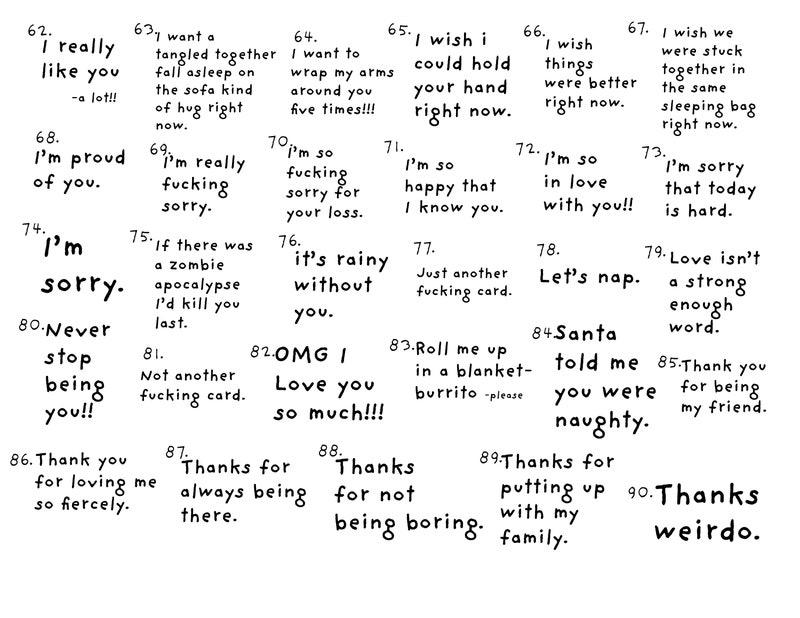 62.
I really
like you
-a lot!!
63.
I want a
tangled together
fall asleep on
the sofa kind
of hug right
now.
64.
I want to
wrap my arms
around you
five times!!!
65.
I wish i
could hold
your hand
right now.
66.
I wish
things
were better
right now.
67.
I wish we
were stuck
together in
the same
sleeping bag
right now.
68.
I'm proud
of you.
69.
I'm really
fucking
sorry.
70.
I'm so
fucking
sorry for
your loss.
71.
I'm so
happy that
I know you.
72.
I'm so
in love
with you!!
73.
I'm sorry
that today
is hard.
74.
I'm
sorry.
75.
If there was
a zombie
apocalypse
I'd kill you
last.
76.
it's rainy
without
you.
77.
Just another
fucking card.
78.
Let's nap.
79.
Love isn't
a strong
enough
word.
80.
Never
stop
being
you!!
81.
Not another
fucking card.
82.
OMG I
Love you
so much!!!
83.
Roll me up
in a blanket-
burrito -please
84.
Santa
told me
you were
naughty.
85.
Thank you
for being
my friend.
86.
Thank you
for loving me
so fiercely.
87.
Thanks for
always being
there.
88.
Thanks
for not
being boring.
89.
Thanks for
putting up
with my
family.
90.
Thanks
weirdo.